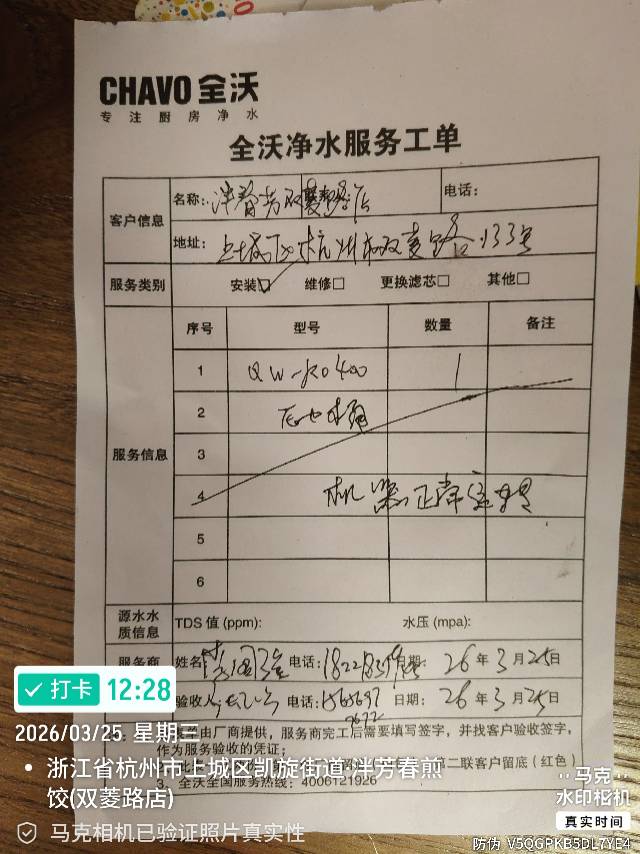 CHAVO 全沃
专注厨房净水
全沃净水服务工单
客户信息
名称: 洋芳 双菱路店
电话:
地址: 上城区杭州市双菱路133号
服务类别 安装☑ 维修□ 更换滤芯□ 其他□
服务信息
序号 型号 数量 备注
1 QW-RO400 1
2
3
4 机器正常运
5
6
源水水质信息 TDS 值 (ppm): 水压 (mpa):
服务商 姓名 电话: 日期: 26 年 3 月 25 日
验收人 电话: 日期: 26 年 3 月 25 日
单由厂商提供，服务商完工后需要填写签字，并找客户验收签字，
作为服务验收的凭证；
第二联客户留底（红色）
3、全沃全国服务热线：4006121926
打卡 12:28
2026/03/25 星期三
浙江省杭州市上城区凯旋街道·洋芳春煎
饺(双菱路店)
马克相机已验证照片真实性
马克
水印相机
真实时间
防伪 V5QGPKB5DL7YE4